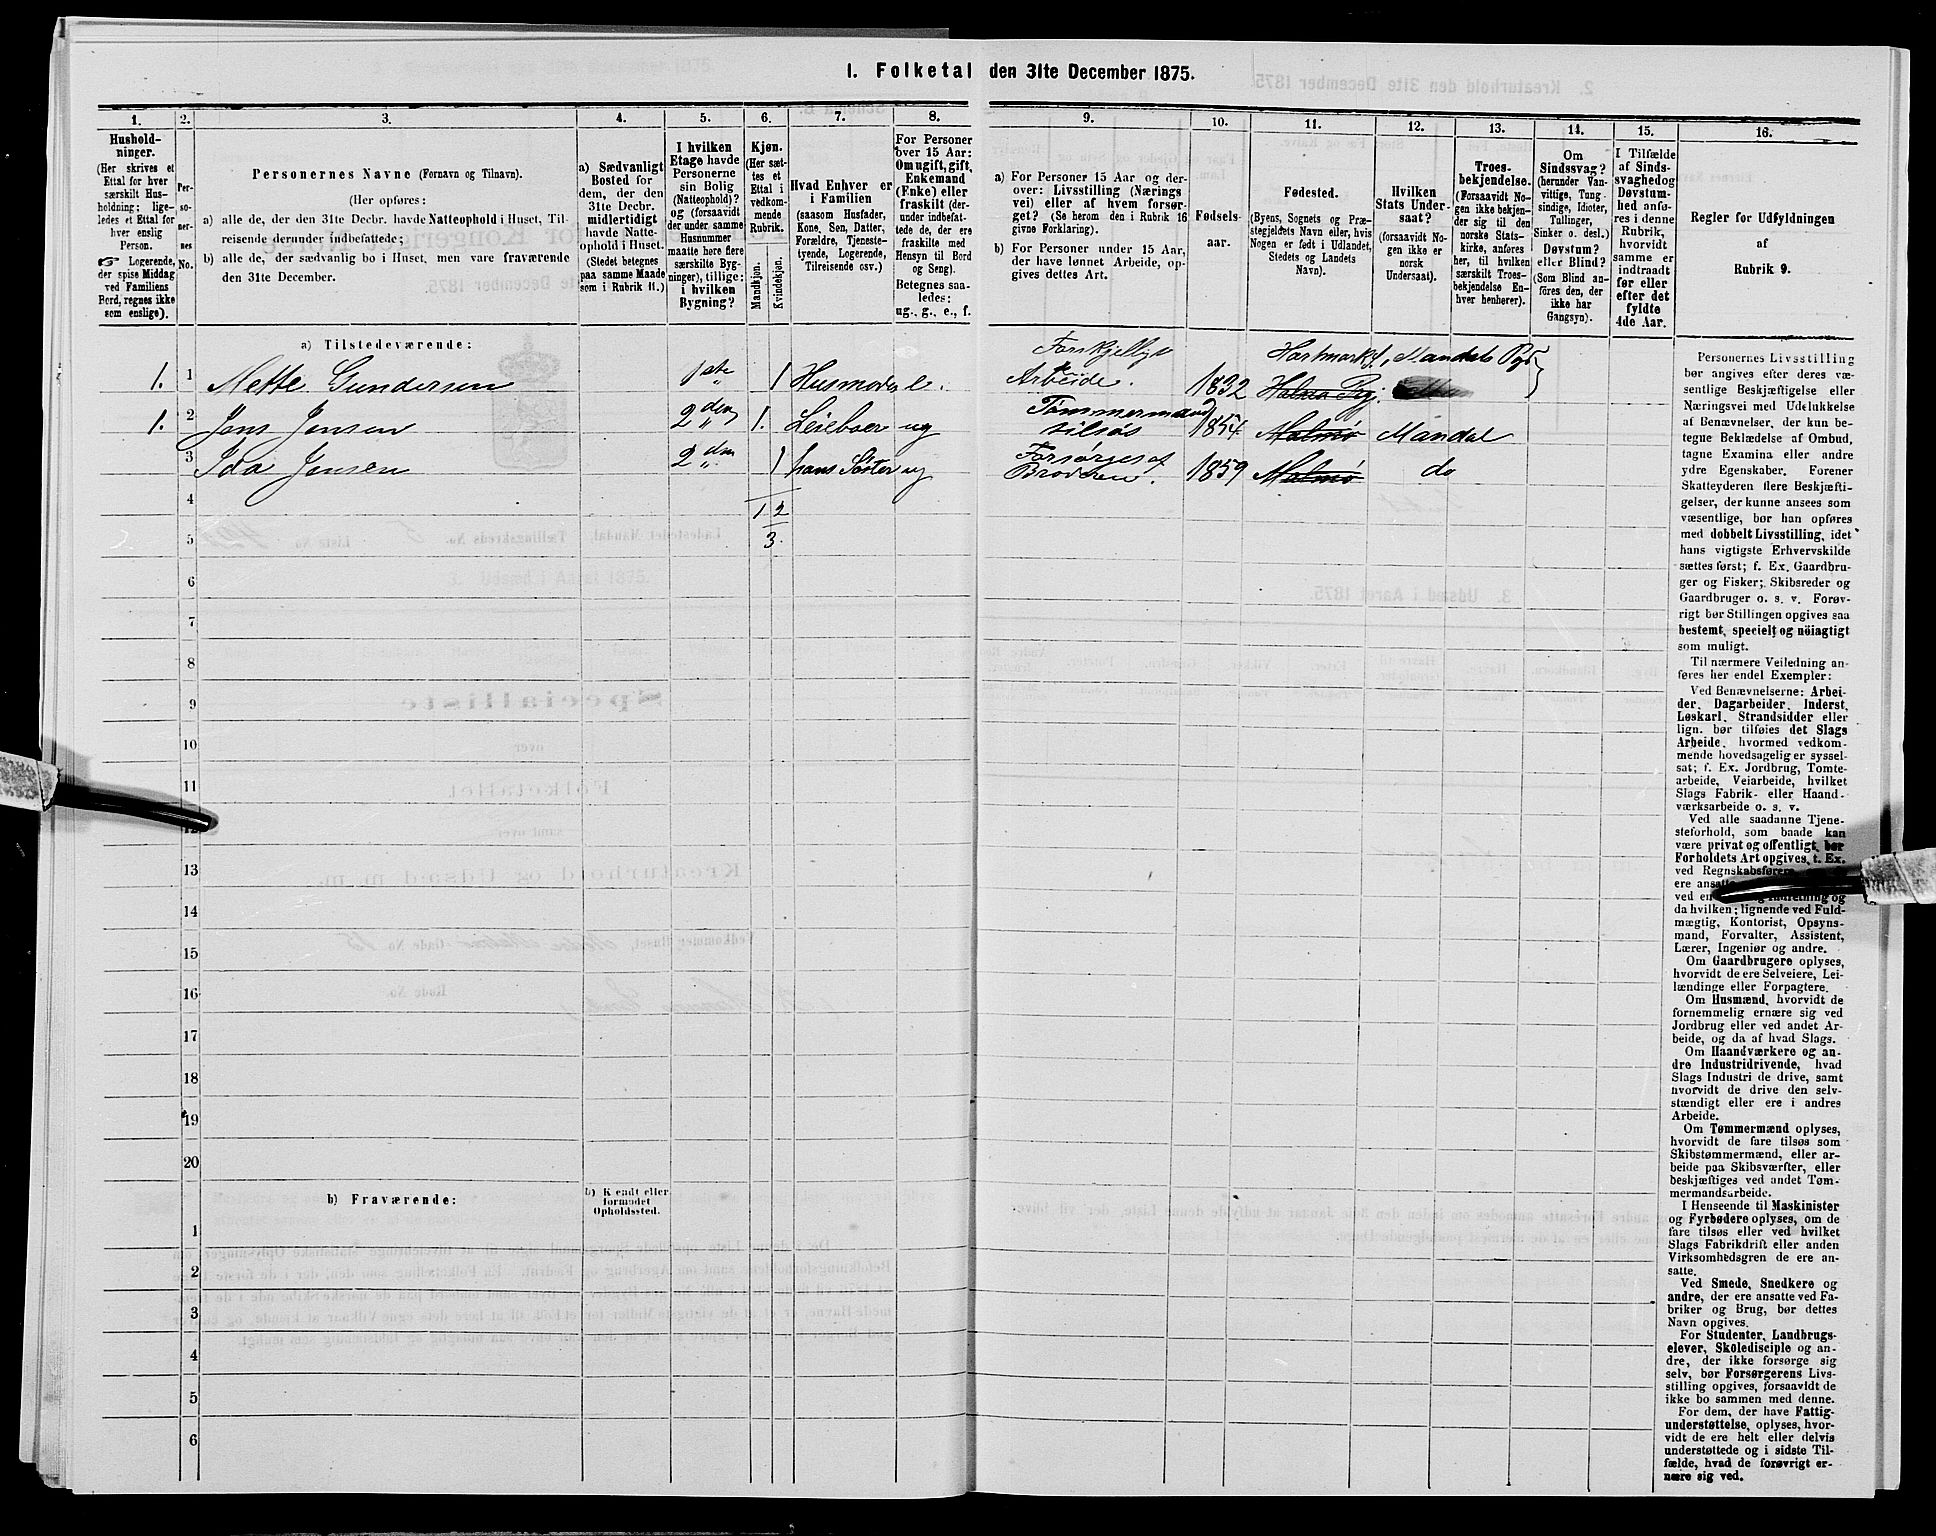 1. Folketal den 31te December 1875.
1.
Hushold-
ninger.
(Her skrives et
Ettal for hver
særskilt Hus-
holdning; lige-
ledes et Ettal for
hver enslig
Person.
☞ Logerende,
der spise Middag
ved Familiens
Bord, regnes ikke
som enslige).
2.
Per-
so-
ner-
nes
No.
3.
Personernes Navne (Fornavn og Tilnavn).
(Her opføres:
a) alle de, der den 31te Decbr. havde Natteophold i Huset, Til-
reisende derunder indbefattede;
b) alle de, der sædvanlig bo i Huset, men vare fraværende
den 31te December.
4.
a) Sædvanligt
Bosted for
dem, der den
31te Decbr.
midlertidigt
havde Natte-
ophold i Huset.
(Stedet betegnes
paa samme Maade
som i Rubrik 11.)
5.
I hvilken
Etage havde
Personerne
sin Bolig
(Natteophold)?
og (forsaavidt
der under samme
Husnummer
maatte høre flere
særskilte Byg-
ninger), tillige:
i hvilken
Bygning?
6.
Kjøn.
(Her sæt-
tes et
Ettal i
vedkom-
mende
Rubrik.
Mandkjøn.
Kvindekjøn.
7.
Hvad Enhver er
i Familien
(saasom Husfader,
Kone, Søn, Datter,
Forældre, Tjeneste-
tyende, Logerende,
Tilreisende osv.)
8.
For Personer
over 15 Aar:
Om ugift, gift,
Enkemand
(Enke) eller
fraskilt (der-
under indbefat-
tede de, der ere
fraskilte med
Hensyn til Bord
og Seng).
Betegnes saa-
ledes:
ug., g., e., f.
9.
a) For Personer 15 Aar og der-
over: Livsstilling (Nærings
vei) eller af hvem forsør-
get? (Se herom den i Rubrik 16
givne Forklaring).
b) For Personer under 15 Aar,
der have lønnet Arbeide, op-
gives dettes Art.
10.
Fødsels-
aar.
11.
Fødested.
(Byens, Sognets og Præ-
stegjeldets Navn eller, hvis
Nogen er født i Udlandet,
Stedets og Landets
Navn).
12.
Hvilken
Stats Under-
saat?
(forsaavidt No-
gen ikke er
norsk
Undersaat).
13.
Troes-
bekjendelse.
(Forsaavidt No-
gen ikke bekjen-
der sig til den
norske Stats-
kirke, anføres
her, til hvilken
særskilt Troes-
bekjendelse En-
hver henhører).
14.
Om
Sindssvag?
(herunder Van-
vittige, Tung-
sindige, Idioter,
Tullinger,
Sinker o. desl.)
Døvstum?
eller Blind?
(Som Blind an-
føres den, der
ikke har
Gangsyn).
15.
I Tilfælde
af Sinds-
svaghed og
Døvstum-
hed anfø-
res i denne
Rubrik,
hvorvidt
samme er
indtraadt
før eller
efter det
fyldte
4de Aar.
16.
Regler for Udfyldningen
af
Rubrik 9.
a) Tilstedeværende:
1. 1 Mette Gundersen 1ste 1 Husmoder e. Forskjelligt Arbeide. 1832 Halmo Prgj. Hartmark S., Mandals Prgj
1. 2 Jens Jensen 2den 1. Leieboer ug Tømmermand tilsøs 1854 Malmø Mandal
3 Ida Jensen 2den 1 hans Søster ug Forsørges af Broderen. 1859 Malmø do
4 1 2
5 3.
6
7
8
9
10
11
12
13
14
15
16
17
18
19
20
b) Fraværende:
b) Kjendt eller
formodet
Opholdssted.
1
2
3
4
5
6
Personernes Livsstilling
bør angives efter deres væ-
sentlige Beskjæftigelse eller
Næringsvei med Udelukkelse
af Benævnelser, der kun be-
tegne Beklædelse af Ombud,
tagne Examina eller andre
ydre Egenskaber. Forener
Skatteyderen flere Beskjæfti-
gelser, der kunne ansees som
væsentlige, bør han opføres
med dobbelt Livsstilling, idet
hans vigtigste Erhvervskilde
sættes først; f. Ex. Gaardbru-
ger og Fisker; Skibsreder og
Gaardbruger o. s. v. Forøv-
rigt bør Stillingen opgives saa
bestemt, specielt og nöiagtigt
som muligt.
Til nærmere Veiledning an-
føres her endel Exempler:
Ved Benævnelserne: Arbei-
der, Dagarbeider, Inderst,
Løskarl, Strandsidder eller
lign. bør tilføies det Slags
Arbeide, hvormed vedkom-
mende hovedsagelig er syssel-
sat; f. Ex. Jordbrug, Tomte-
arbeide, Veiarbeide, hvilket
Slags Fabrik- eller Haand-
værksarbeide o. s. v.
Ved alle saadanne Tjene-
steforhold, som baade kan
være privat og offentligt, bør
Forholdets Art opgives, f. Ex.
ved Regnskabsførere,
ere ansatte
ved en
og
da hvilken; lignende ved Fuld-
mægtig, Kontorist, Opsyns-
mand, Forvalter, Assistent,
Lærer, Ingeniør og andre.
Om Gaardbrugere oplyses,
hvorvidt de ere Selveiere, Lei-
lændinge eller Forpagtere.
Om Husmænd, hvorvidt de
fornemmelig ernære sig ved
Jordbrug eller ved andet Ar-
beide, og da af hvad Slags.
Om Haandværkere og an-
dre Industridrivende, hvad
Slags Industri de drive, samt
hvorvidt de drive den selv-
stændigt eller ere i andres
Arbeide.
Om Tømmermænd oplyses,
hvorvidt de fare tilsøs som
Skibstømmermænd, eller ar-
beide paa Skibsværfter, eller
beskjæftiges ved andet Tøm-
mermandsarbeide.
I Henseende til Maskinister
og Fyrbødere oplyses, om de
fare tilsøs eller ved hvilket
Slags Fabrikdrift eller anden
Virksomhedsgren de ere an-
satte.
Ved Smede, Snedkere og
andre, der ere ansatte ved Fa-
briker og Brug, bør dettes
Navn opgives.
For Studenter, Landbrugs-
elever, Skoledisciple og an-
dre, der ikke forsørge sig
selv, bør Forsørgerens Livs-
stilling opgives, forsaavidt de
ikke bo sammen med denne.
For dem, der have Fattig-
understøttelse, oplyses, hvor-
vidt de ere helt eller delvis
understøttede og i sidste Til-
fælde, hvad de forøvrigt er-
nære sig ved.